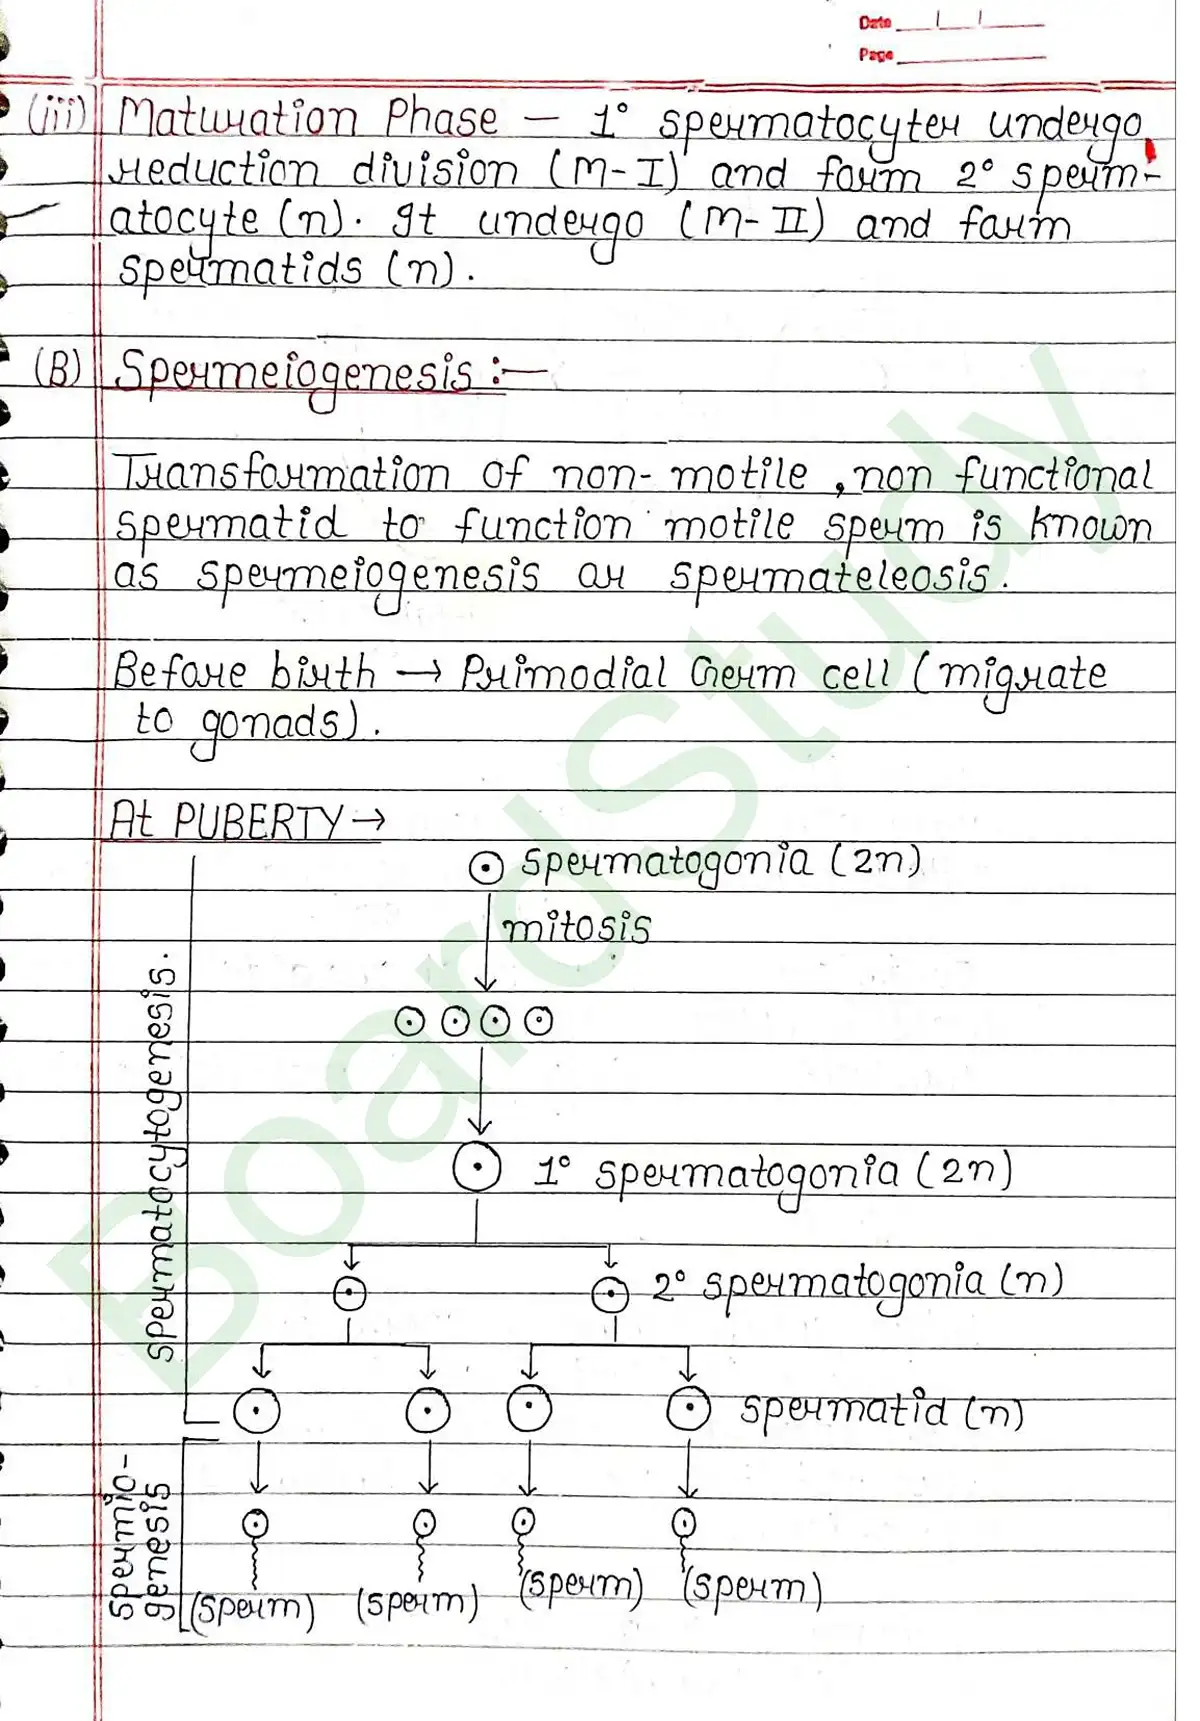 Date
Page
(iii) Maturation Phase — 1° spermatocyter undergo
reduction division (M-I) and form 2° sperm-
atocyte (n). It undergo (M-II) and form
spermatids (n).
(B) Spermeiogenesis :—
Transformation of non-motile, non functional
spermatid to function motile sperm is known
as spermeiogenesis or spermateleosis.
Before birth → Primodial Germ cell (migrate
to gonads).
At PUBERTY →
spermatogonia (2n)
mitosis
1° spermatogonia (2n)
2° spermatogonia (n)
spermatid (n)
(sperm) (sperm) (sperm) (sperm)
spermatocytogenesis.
spermio-
genesis
BoardStudy